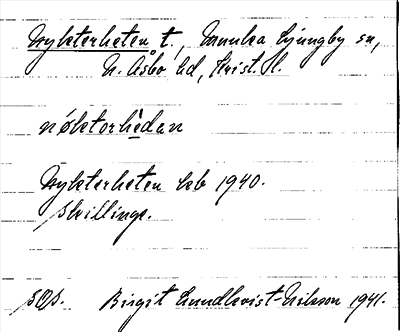 Nykterheten t., Munka Ljungby sn,
N. Åsbo hd, Krist. l.
nøktorhèdan
Nykterheten ekb 1940.
Skillinge.
SOS. Birgit Lundkvist-Nilsson 1941.